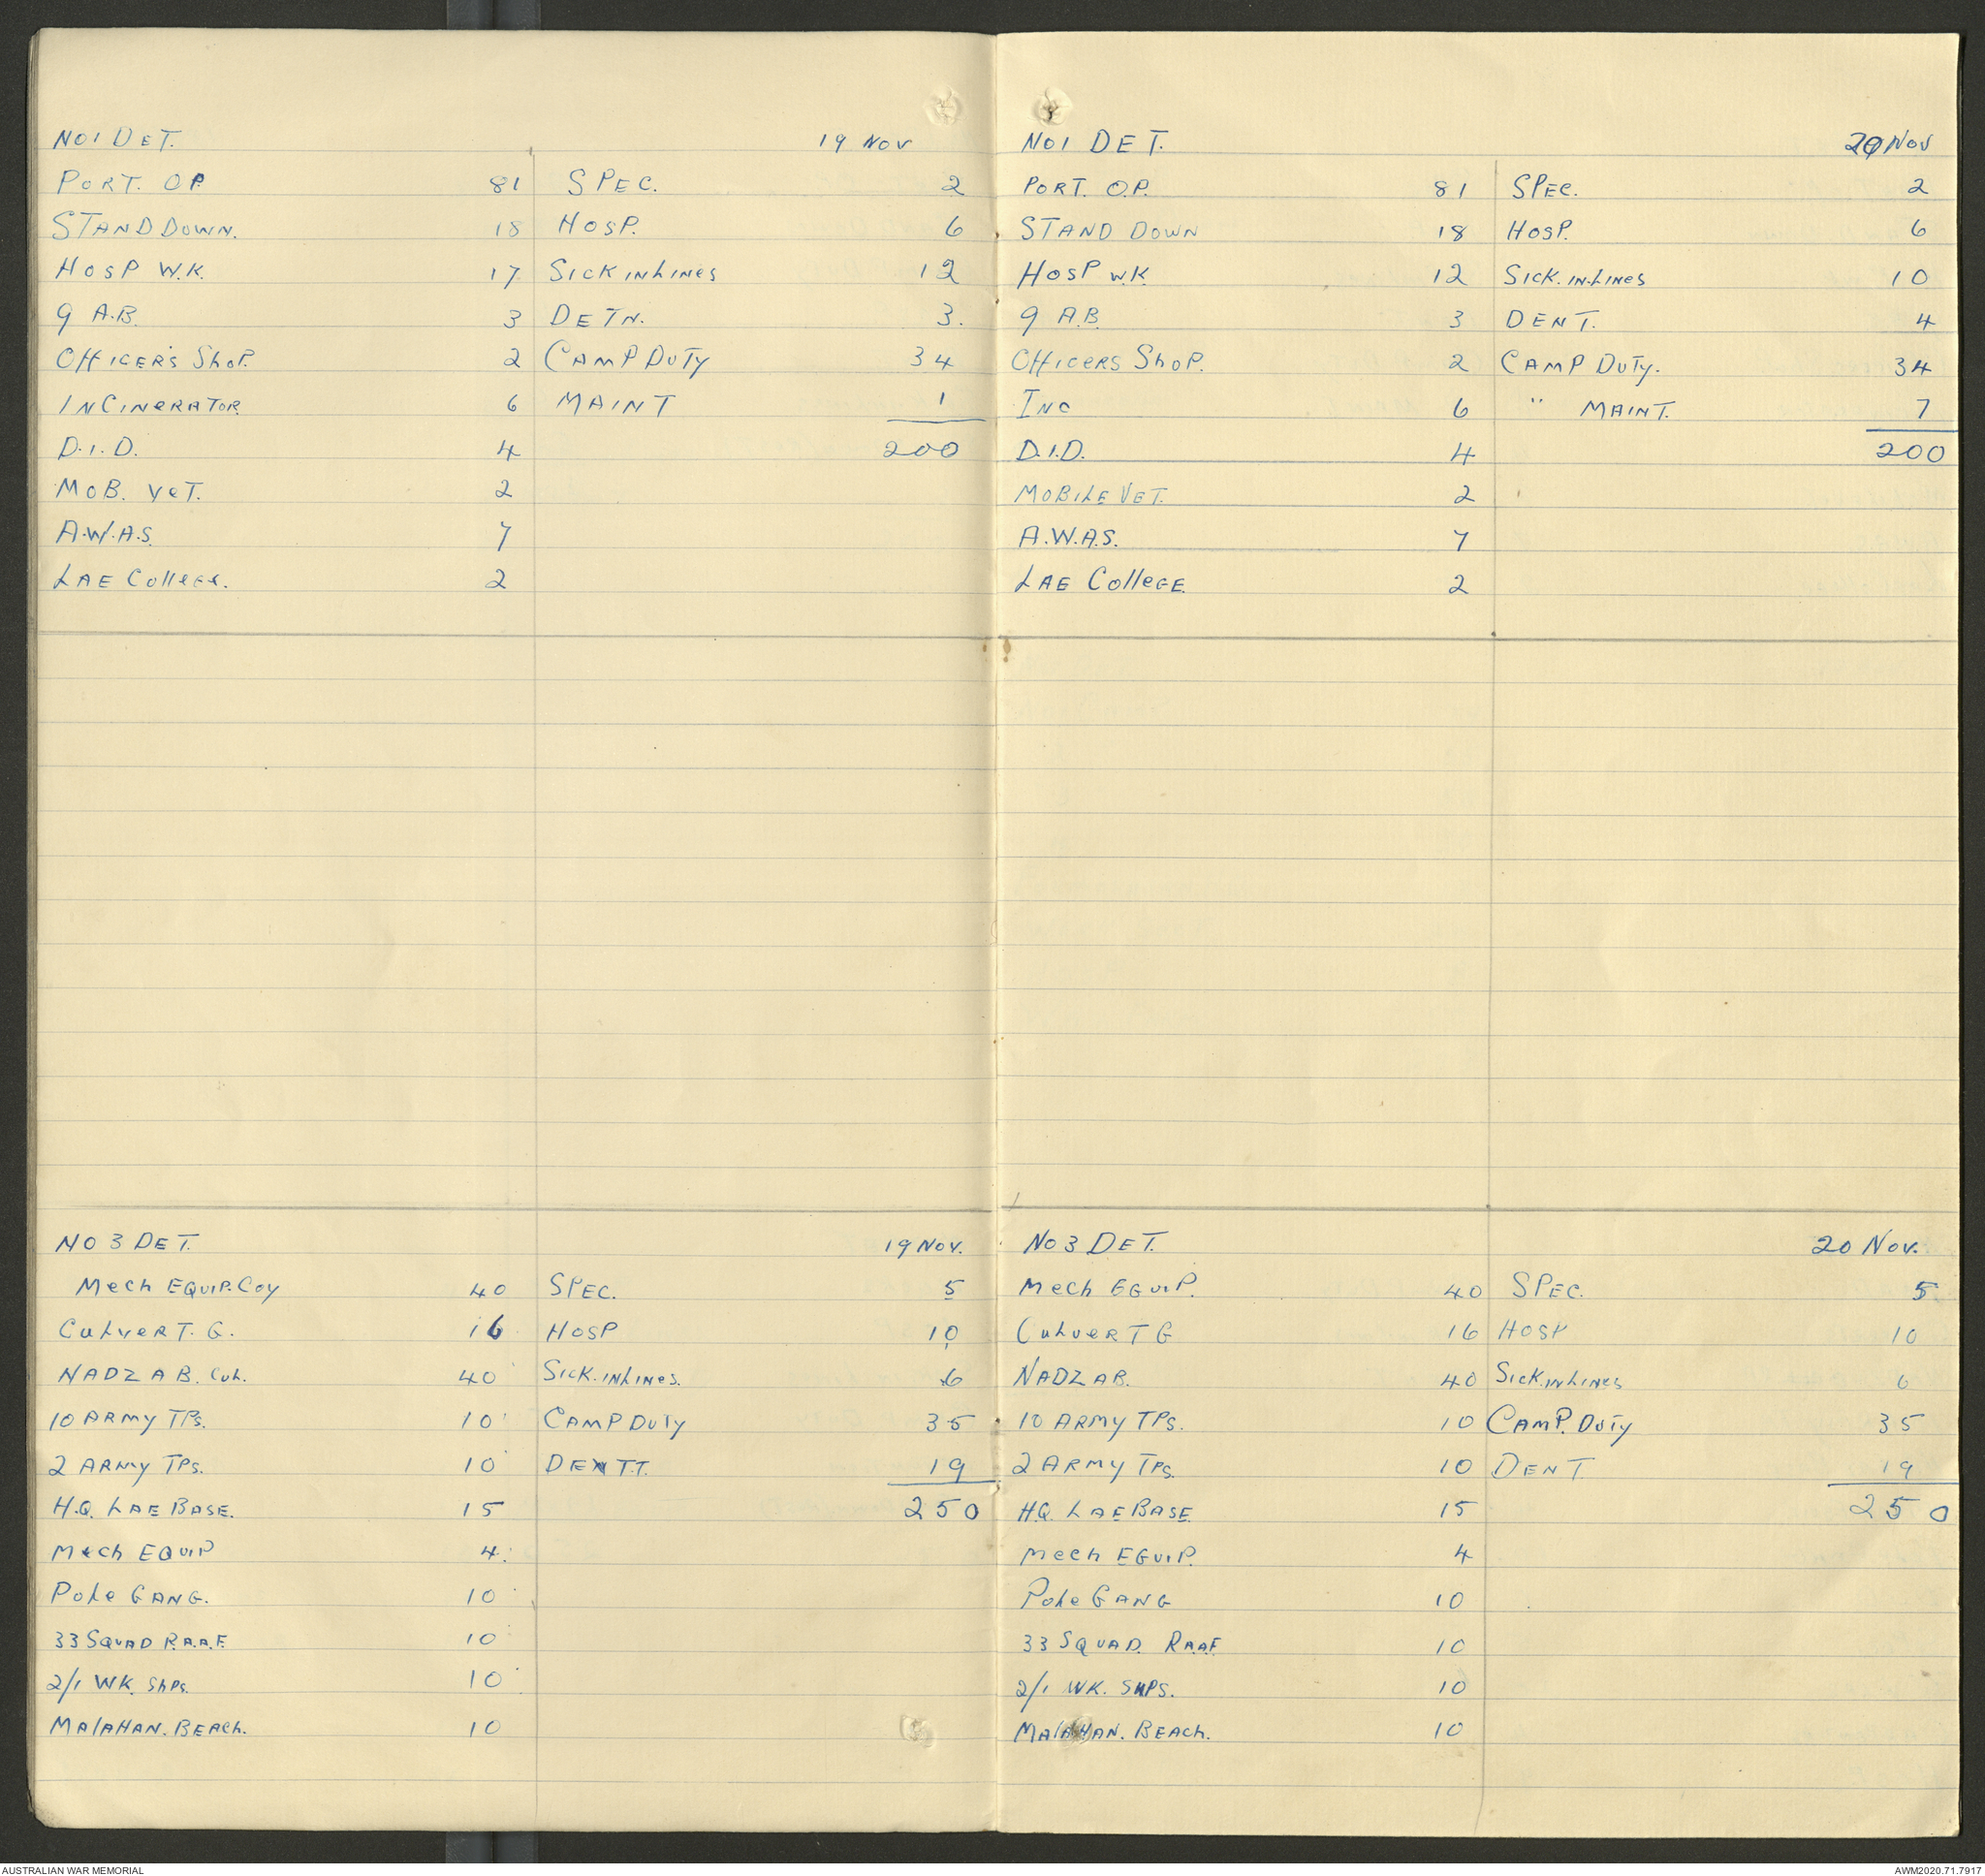 NO 1 DET. 19 NOV
PORT. OP. 81 SPEC. 2
STAND DOWN. 18 HOSP. 6
HOSP W.K. 17 SICK IN LINES 12
9 A.B. 3 DETN. 3.
OFFICER'S SHOP. 2 CAMP DUTY 34
INCINERATOR 6 MAINT 1
D.I.D. 4 200
MOB. VET. 2
A.W.A.S. 7
LAE COLLEGE. 2
NO 3 DET. 19 NOV.
MECH EQUIP. COY 40 SPEC. 5
CULVERT. G. 16 HOSP 10
NADZAB. CUL. 40 SICK. IN LINES. 6
10 ARMY TPS. 10 CAMP DUTY 35
2 ARMY TPS. 10 DENTT. 19
H.Q. LAE BASE. 15 250
MECH EQUIP 4
POLE GANG. 10
33 SQUAD R.A.A.F. 10
2/1 WK. SHPS. 10
MALAHAN. BEACH. 10
NO 1 DET. 20 NOV
PORT. O.P. 81 SPEC. 2
STAND DOWN 18 HOSP. 6
HOSP W.K. 12 SICK. IN-LINES 10
9 A.B. 3 DENT. 4
OFFICERS SHOP. 2 CAMP DUTY. 34
INC 6 " MAINT. 7
D.I.D. 4 200
MOBILE VET. 2
A.W.A.S. 7
LAE COLLEGE. 2
NO 3 DET. 20 NOV.
MECH EQUIP. 40 SPEC. 5
CULVERT G 16 HOSP 10
NADZAB. 40 SICK. IN LINES 6
10 ARMY TPS. 10 CAMP. DUTY 35
2 ARMY TPS. 10 DENT 19
H.Q. LAE BASE. 15 250
MECH EQUIP. 4
POLE GANG 10
33 SQUAD. R.A.A.F. 10
2/1 WK. SHPS. 10
MALAHAN. BEACH. 10
AUSTRALIAN WAR MEMORIAL AWM2020.71.7917